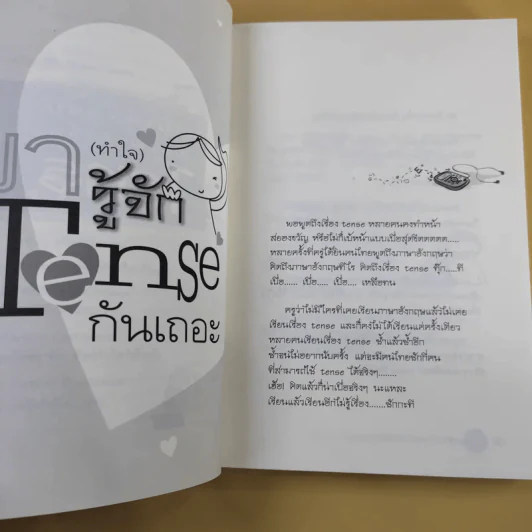 มา
(ทำใจ)
รู้จัก
Tense
กันเถอะ
พอพูดถึงเรื่อง tense หลายคนคงทำหน้า
สยองขวัญ หรือไม่ก็เบ้หน้าแบบเบื่อสุดขีดดดดด.....
หลายครั้งที่ครูได้ยินคนไทยพูดถึงภาษาอังกฤษว่า
คิดถึงภาษาอังกฤษทีไร คิดถึงเรื่อง tense ทุ๊ก.....ที
เบื่อ..... เบื่อ..... เบื่อ..... เหลือทน
ครูว่าไม่มีใครที่เคยเรียนภาษาอังกฤษแล้วไม่เคย
เรียนเรื่อง tense และก็คงไม่ได้เรียนแค่ครั้งเดียว
หลายคนเรียนเรื่อง tense ซ้ำแล้วซ้ำอีก
ซ้ำจนไม่อยากนับครั้ง แต่จะมีคนไทยซักกี่คน
ที่สามารถใช้ tense ได้จริงๆ.......
เฮ้อ! คิดแล้วก็น่าเบื่อจริงๆ นะแหละ
เรียนแล้วเรียนอีกก็ไม่รู้เรื่อง.......ซักกะที